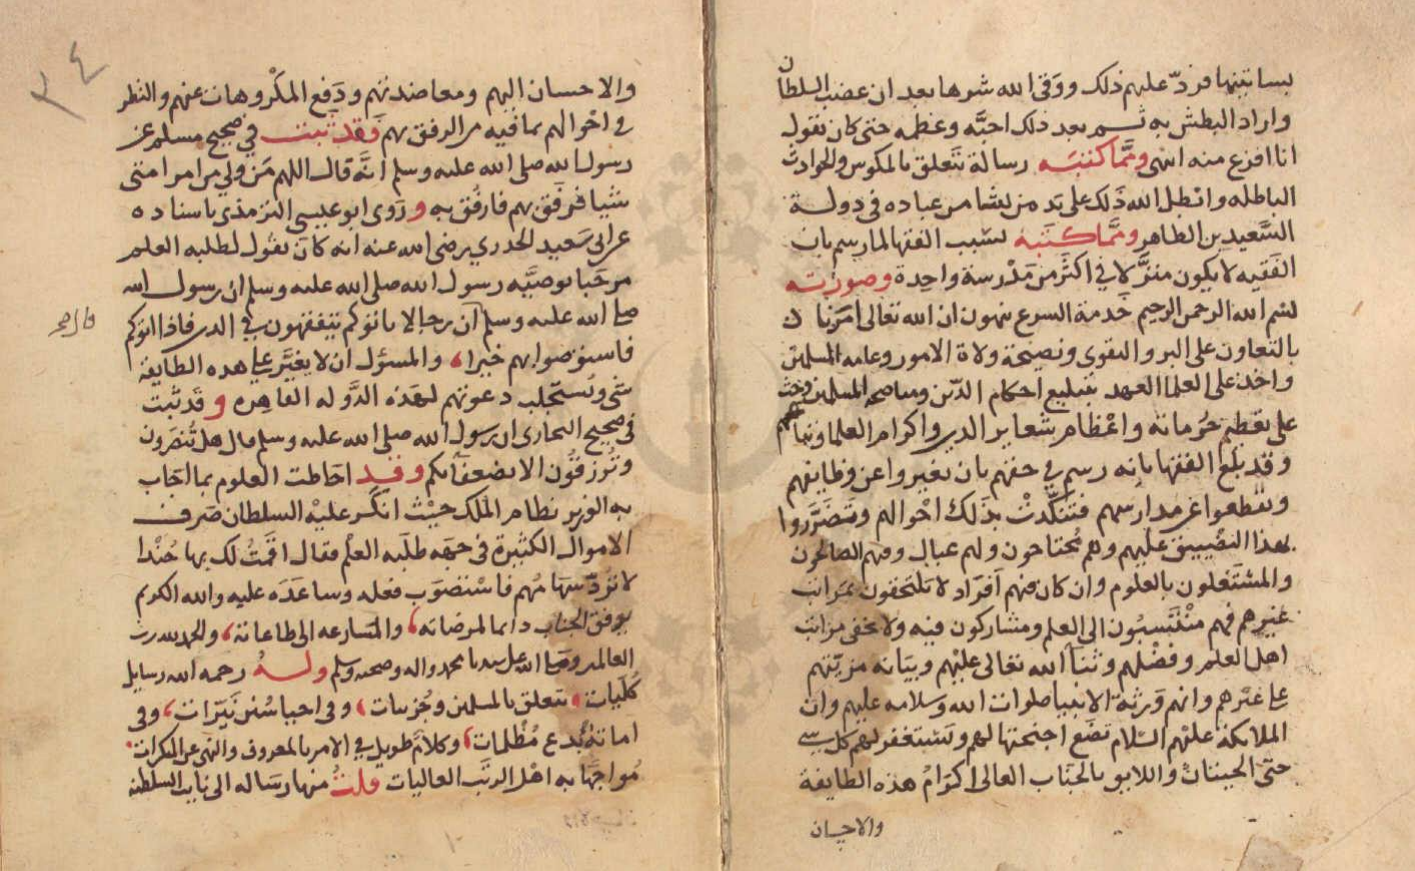 بساتينها فردّ عليهم ذلك ووقى الله شرها بعد ان غضب السلطان
واراد البطش به ثم بعد ذلك احبّه وعظمه حتى كان يقول
انا افزع منه انتهى ومما كتبته رسالة تتعلق بالمكوس والحوادث
الباطله وابطل الله ذلك على يد من يشا من عباده في دولة
السّعيد بن الظاهر ومما كتبه بسبب الفقها لما رسم بان
الفقيه لا يكون منزّلا في اكثر من مدرسة واحدة وصورته
بسم الله الرحمن الرحيم خدمة الشرع ينهون ان الله تعالى امرنا
بالتعاون على البر والتقوى ونصيحة ولاة الامور وعامة المسلمين
واخذ على العلما العهد بتبليغ احكام الدّين ومناصحة المسلمين وحث
على تعظيم حرماته واعظام شعاير الدين واكرام العلما
وقد بلغ الفقها بانه رسم في حقهم بان يغيروا عن وظايفهم
ويقطعوا عن مدارسهم فتنكّدت بذلك احوالهم وتضرّروا
بهذا التضييق عليهم وهم محتاجون ولهم عيال وفيهم الصالحون
والمشتغلون بالعلوم وان كان فيهم افراد لا يلتحقون بمراتب
غيرهم فهم منتسبون الى العلم ومشاركون فيه ولا يخفى مراتب
اهل العلم وفضلهم وثنا الله تعالى عليهم وبيانه مزيّتهم
على غيرهم وانهم ورثة الانبيا صلوات الله وسلامه عليهم وان
الملايكة عليهم السّلام تضع اجنحتها لهم ويستغفر لهم كل شي
حتى الحيتان واللايق بالجناب العالى اكرام هذه الطايفة
والاحسان
٣٤
والاحسان اليهم ومعاضدتهم ودفع المكروهات عنهم والنظر
في احوالهم بما فيه من الرفق بهم فقد ثبت في صحيح مسلم عن
رسول الله صلى الله عليه وسلم انّه قال اللهم من ولي من امر امتى
شيا فرفق بهم فارفق به وروى ابو عيسى الترمذي باسناده
عن ابى سعيد الخدري رضى الله عنه انه كان يقول لطلبة العلم
مرحبا بوصيّه رسول الله صلى الله عليه وسلم ان رسول الله
صلى الله عليه وسلم ان رجالا ياتوكم يتفقهون في الدين فاذا اتوكم
قال
فاستوصوا بهم خيرا، والمسؤل ان لا يغيّر على هذه الطايفة
شي ويُستجلب دعوتهم لهذه الدّوله القاهرة وقد ثبت
في صحيح البخارى ان رسول الله صلى الله عليه وسلم قال هل تُنصرون
وتُرزقون الا بضعفآئكم وقد احاطت العلوم بما اجاب
به الوزير نظام الملك حيث انكر عليه السلطان صرف
الاموال الكثيرة في جهه طلبه العلم فقال اقمتُ لك بها جُندا
لا تُردّ سهامُهم فاستصوب فعله وساعده عليه والله الكريم
يوفق الجناب دايما لمرضاته، والمسارعه الى طاعاته، والحمد لله رب
العالمين وصلى الله على سيدنا محمد واله وصحبه وسلم ولهُ رحمه الله رسايل
كليات، تتعلق بالمسلمين وجُزييات، وفي احيا سُنن نيّرات، وفي
اماتة بُدع مُظلمات، وكلامٌ طويل في الامر بالمعروف والنهى عن المنكرات
مُواجهًا به اهل الرتب العاليات قلتُ منها رساله الى نايب السلطنة